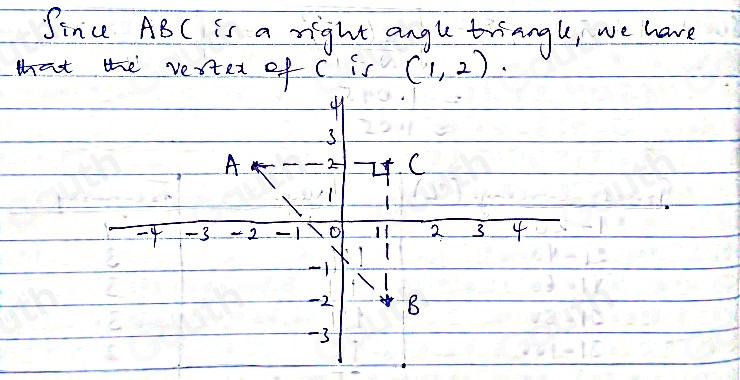 Since ABC is a right angle triangle, we have
that the vertex of C is (1, 2).
4
3
A 2 C
1
-4 -3 -2 -1 0 1 2 3 4
-1
-2 B
-3